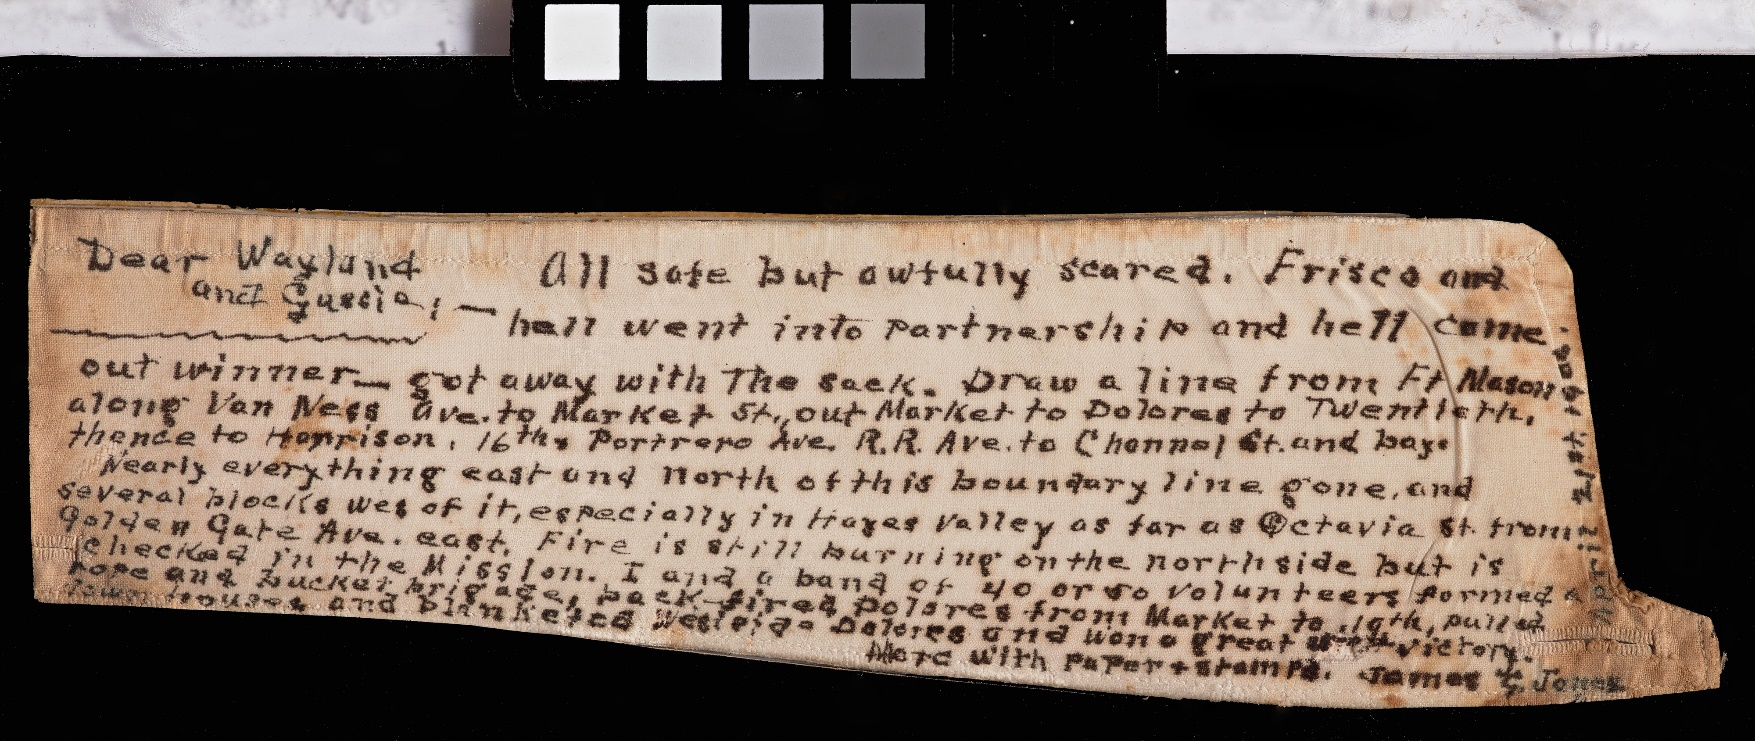 Dear Wayland
and Gussie; —
All safe but awfully scared. Frisco and
hell went into partnership and hell came
out winner — got away with The sack. Draw a line from Ft Mason
along Van Ness Ave. to Market St., out Market to Dolores to Twentieth,
thence to Harrison, 16th, Portrero Ave. R.R. Ave. to Channel St. and bay.
Nearly everything east and north of this boundary line gone, and
several blocks wes of it, especially in Hayes Valley as far as Octavia St. from
Golden Gate Ave. east. Fire is still burning on the northside but is
checked in the Mission. I and a band of 40 or so volunteers formed a
rope and bucket brigade, back-fired Dolores from Market to 19th, pulled
down houses and blanketed Westside Dolores and won a great victory.
More with paper + stamps. James G. Jones
April 21st 1906.